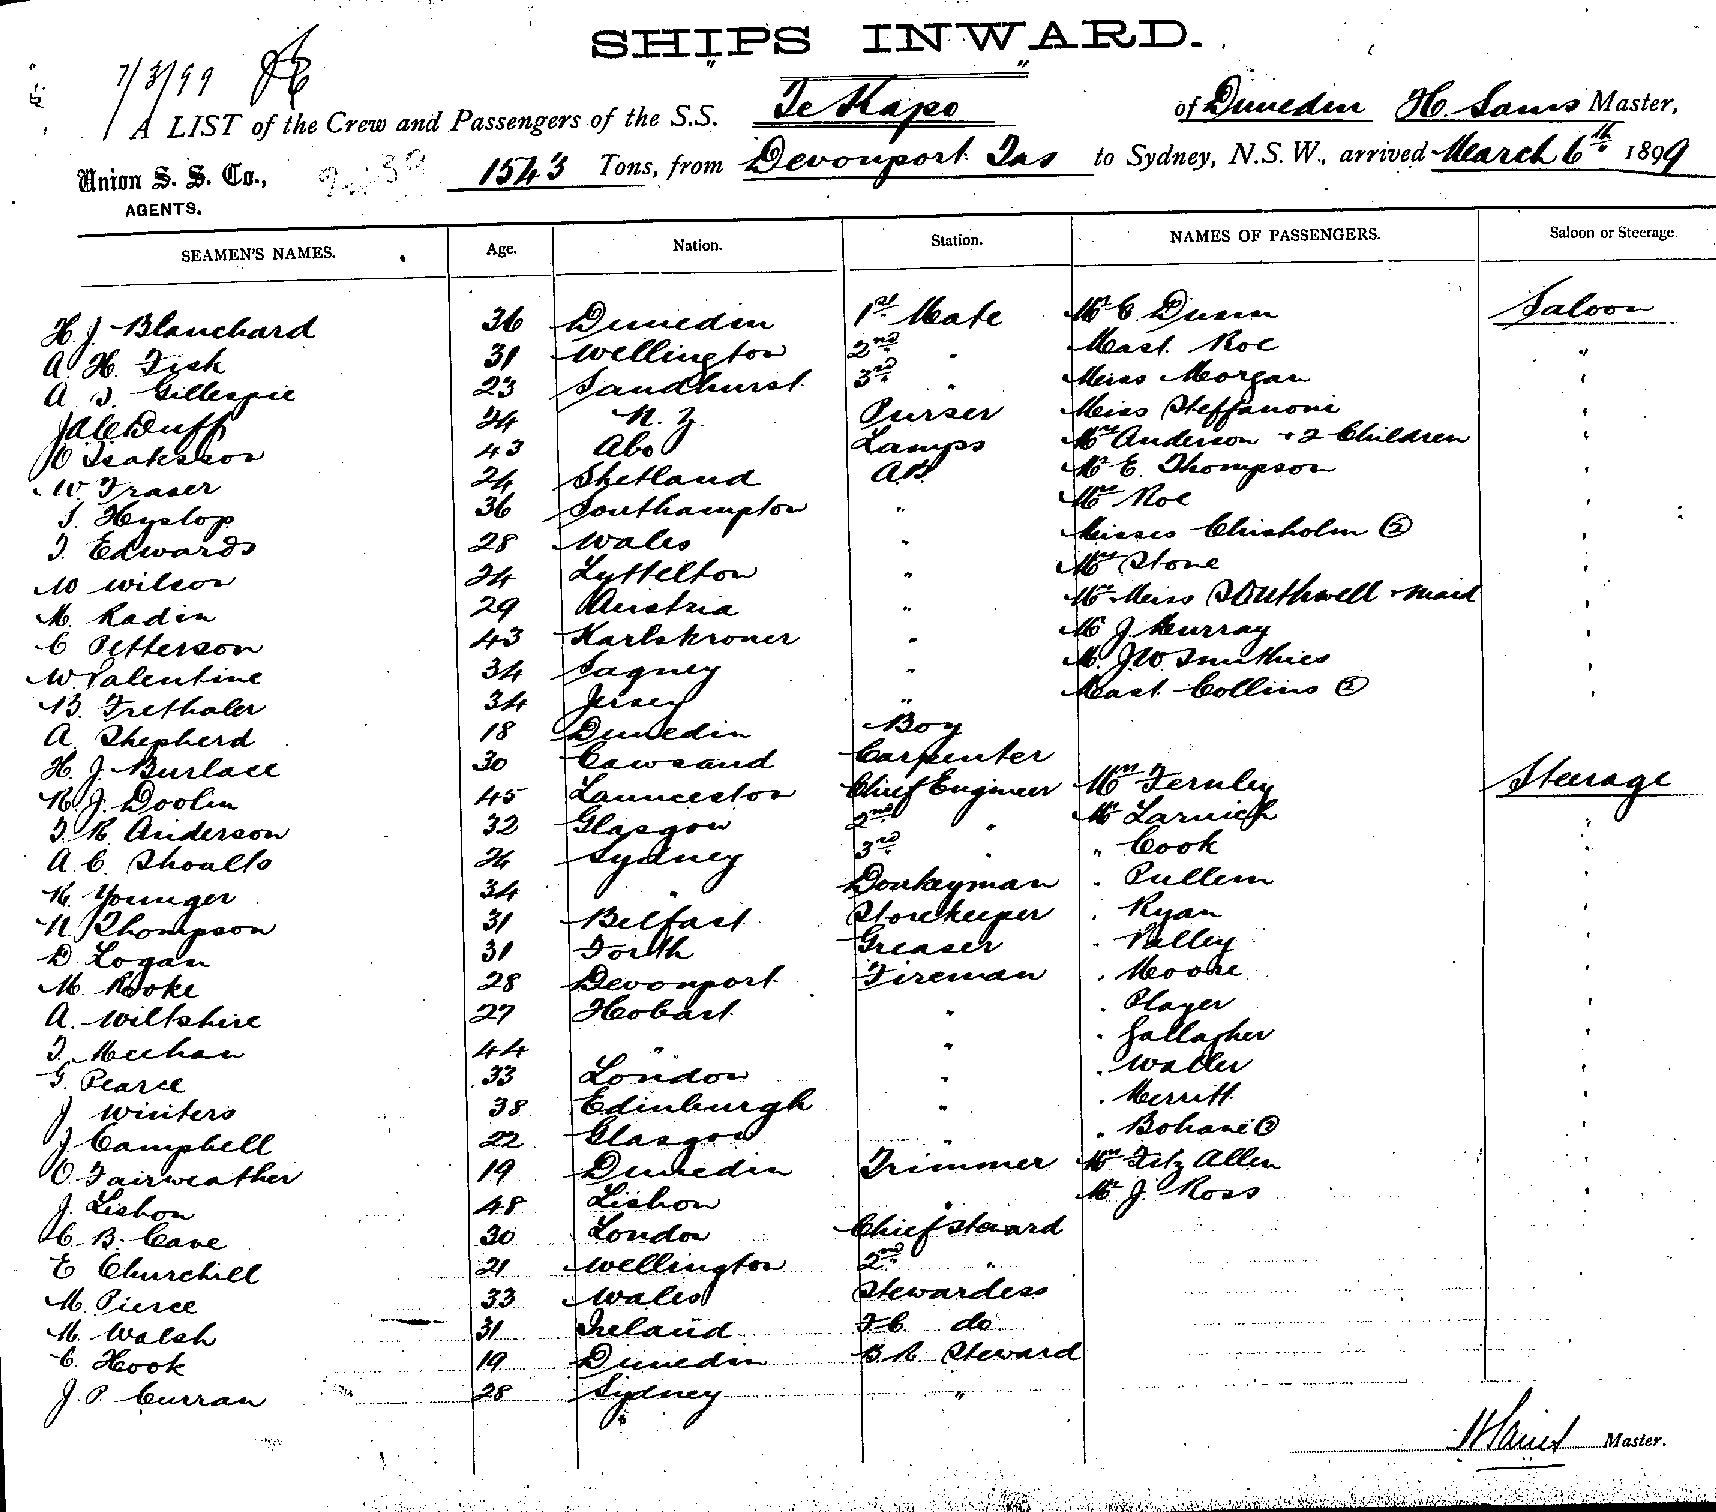 SHIPS INWARD.
7/3/99
A LIST of the Crew and Passengers of the S.S. Te Kapo of Dunedin H. Sams Master,
Union S. S. Co., 1543 Tons, from Devonport Tas to Sydney, N.S.W., arrived March 6th 1899
AGENTS.
SEAMEN'S NAMES. Age. Nation. Station. NAMES OF PASSENGERS. Saloon or Steerage
H J Blanchard 36 Dunedin 1st Mate Mr C Dunn Saloon
A H. Fisk 31 Wellington 2nd " Mast. Roe "
A J. Gillespie 23 Sandhurst 3rd " Miss Morgan "
J A C Duff 24 N. Z. Purser Miss Steffanoni "
Isaksson 43 Abo Lamps Mrs Anderson + 2 Children "
W. Fraser 24 Shetland A.B. Mr E. Thompson "
J. Hyslop 36 Southampton " Mrs Roe "
J. Edwards 28 Wales " Misses Chisholm "
W Wilson 24 Lyttelton " Mrs Stone "
M. Radin 29 Austria " Miss Southwell + maid "
C Petterson 43 Karlskroner " Mr J Murray "
W. Valentine 34 " Mr. J. W. Smithies "
B. Trethaler 34 Jersey " Mast. Collins "
A. Shepherd 18 Dunedin Boy
H. J. Burlace 30 Cawsand Carpenter
R J. Doolin 45 Launceston Chief Engineer Mrs Fernley Steerage
J. R. Anderson 32 Glasgow 2nd " Mr Larnich "
A. C. Shoalto 26 Sydney 3rd " " Cook "
R. Younger 34 " Donkeyman " Pullem "
N Thompson 31 Belfast Storekeeper " Ryan "
D Logan 31 Forth Greaser " Valley "
M. Rooke 28 Devonport Fireman " Moore "
A. Wiltshire 27 Hobart " " Player "
J. Meehan 44 " " " Gallagher "
G. Pearce 33 London " " Waller "
J Winters 38 Edinburgh " " Merritt "
J Campbell 22 Glasgow " " Bohane "
C Fairweather 19 Dunedin Trimmer Mrs Fitz Allen "
J. Lisbon 48 Lisbon " Mr J. Ross "
C. B. Cave 30 London Chief Steward
E Churchill 21 Wellington 2nd "
M. Pierce 33 Wales Stewardess
M. Walsh 31 Ireland F.C. do
C. Hook 19 Dunedin B.R. Steward
J. P. Curran 28 Sydney "
H Sams Master.